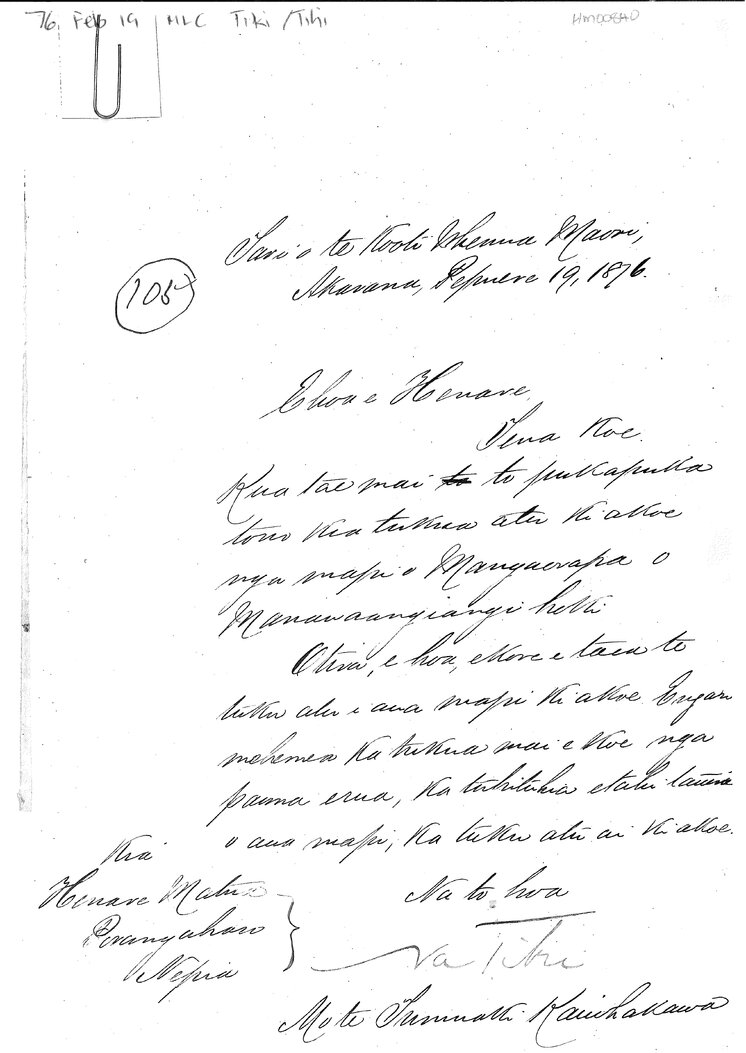 76, Feb 19 MLC Tiki / Tihi
HM00840
Tari o te Kooti Whenua Maori,
Akarana, Pepuere 19, 1876.
105
E hoa e Henare,
Tena Koe.
Kua tae mai to pukapuka
tono kia tukua atu ki akoe
nga mapi o Mangaorapa o
Manawaangiangi hoki
Otira, e hoa, ekore e taea te
tuku atu i aua mapi ki akoe. Engari
mehemea Ka tukua mai e Koe nga
pauna erua, Ka tuhituhia etahi tauira
o aua mapi, Ka tuku atu ai ki akoe.
Kia
Henare Matua
Porangahau
Nepia
Na to hoa
Na
Mo te Tumuaki Kaiwhakawa